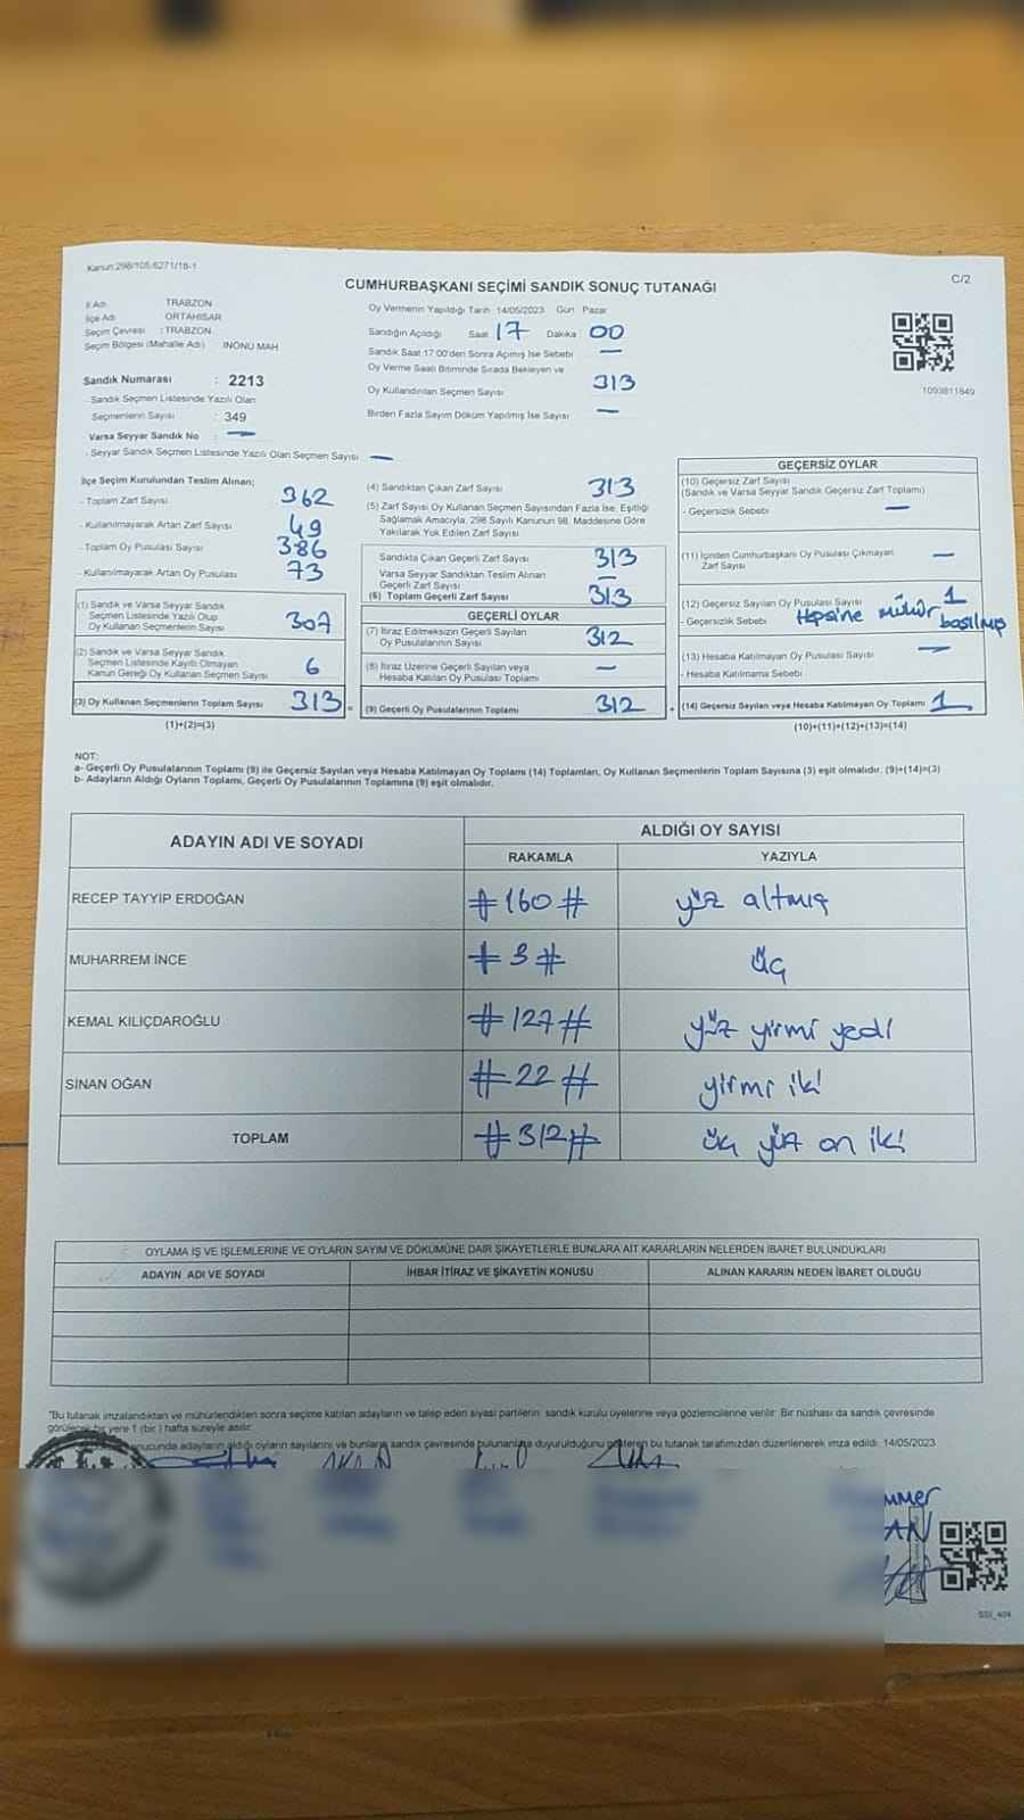 Kanun:298/105/6271/18-1
C/2
CUMHURBAŞKANI SEÇİMİ SANDIK SONUÇ TUTANAĞI
İl Adı TRABZON
İlçe Adı ORTAHİSAR
Seçim Çevresi : TRABZON
Seçim Bölgesi (Mahalle Adı) İNÖNÜ MAH
Sandık Numarası : 2213
- Sandık Seçmen Listesinde Yazılı Olan
Seçmenlerin Sayısı : 349
- Varsa Seyyar Sandık No : —
- Seyyar Sandık Seçmen Listesinde Yazılı Olan Seçmen Sayısı —
Oy Vermenin Yapıldığı Tarih: 14/05/2023 Gün: Pazar
Sandığın Açıldığı Saat 17 Dakika: 00
Sandık Saat 17:00'den Sonra Açılmış İse Sebebi —
Oy Verme Saati Bitiminde Sırada Bekleyen ve
Oy Kullandırılan Seçmen Sayısı 313
Birden Fazla Sayım Döküm Yapılmış İse Sayısı —
1093811849
İlçe Seçim Kurulundan Teslim Alınan;
- Toplam Zarf Sayısı 362
- Kullanılmayarak Artan Zarf Sayısı 49
- Toplam Oy Pusulası Sayısı 386
- Kullanılmayarak Artan Oy Pusulası 73
(1) Sandık ve Varsa Seyyar Sandık
Seçmen Listesinde Yazılı Olup
Oy Kullanan Seçmenlerin Sayısı 307
(2) Sandık ve Varsa Seyyar Sandık
Seçmen Listesinde Kayıtlı Olmayan
Kanun Gereği Oy Kullanan Seçmen Sayısı 6
(3) Oy Kullanan Seçmenlerin Toplam Sayısı 313 =
(1)+(2)=(3)
(4) Sandıktan Çıkan Zarf Sayısı 313
(5) Zarf Sayısı Oy Kullanan Seçmen Sayısından Fazla İse, Eşitliği
Sağlamak Amacıyla, 298 Sayılı Kanunun 98. Maddesine Göre
Yakılarak Yok Edilen Zarf Sayısı
Sandıkta Çıkan Geçerli Zarf Sayısı 313
Varsa Seyyar Sandıktan Teslim Alınan
Geçerli Zarf Sayısı —
(6) Toplam Geçerli Zarf Sayısı 313
GEÇERLİ OYLAR
(7) İtiraz Edilmeksizin Geçerli Sayılan
Oy Pusulalarının Sayısı 312
(8) İtiraz Üzerine Geçerli Sayılan veya
Hesaba Katılan Oy Pusulası Toplamı —
(9) Geçerli Oy Pusulalarının Toplamı 312 +
GEÇERSİZ OYLAR
(10) Geçersiz Zarf Sayısı
(Sandık ve Varsa Seyyar Sandık Geçersiz Zarf Toplamı)
- Geçersizlik Sebebi —
(11) İçinden Cumhurbaşkanı Oy Pusulası Çıkmayan
Zarf Sayısı —
(12) Geçersiz Sayılan Oy Pusulası Sayısı 1
- Geçersizlik Sebebi Hepsine mühür basılmış
(13) Hesaba Katılmayan Oy Pusulası Sayısı —
- Hesaba Katılmama Sebebi
(14) Geçersiz Sayılan veya Hesaba Katılmayan Oy Toplamı 1
(10)+(11)+(12)+(13)=(14)
NOT:
a- Geçerli Oy Pusulalarının Toplamı (9) ile Geçersiz Sayılan veya Hesaba Katılmayan Oy Toplamı (14) Toplamları, Oy Kullanan Seçmenlerin Toplam Sayısına (3) eşit olmalıdır. (9)+(14)=(3)
b- Adayların Aldığı Oyların Toplamı, Geçerli Oy Pusulalarının Toplamına (9) eşit olmalıdır.
ADAYIN ADI VE SOYADI
ALDIĞI OY SAYISI
RAKAMLA YAZIYLA
RECEP TAYYİP ERDOĞAN #160# yüz altmış
MUHARREM İNCE #3# üç
KEMAL KILIÇDAROĞLU #127# yüz yirmi yedi
SİNAN OĞAN #22# yirmi iki
TOPLAM #312# üç yüz on iki
OYLAMA İŞ VE İŞLEMLERİNE VE OYLARIN SAYIM VE DÖKÜMÜNE DAİR ŞİKAYETLERLE BUNLARA AİT KARARLARIN NELERDEN İBARET BULUNDUKLARI
ADAYIN ADI VE SOYADI İHBAR İTİRAZ VE ŞİKAYETİN KONUSU ALINAN KARARIN NEDEN İBARET OLDUĞU
"Bu tutanak imzalandıktan ve mühürlendikten sonra seçime katılan adayların ve talep eden siyasi partilerin sandık kurulu üyelerine veya gözlemcilerine verilir. Bir nüshası da sandık çevresinde
görülecek bir yere 1 (bir ) hafta süreyle asılır.
adayların aldığı oyların sayılarını ve bunların sandık çevresinde bulunanlara duyurulduğunu gösteren bu tutanak tarafımızdan düzenlenerek imza edildi. 14/05/2023